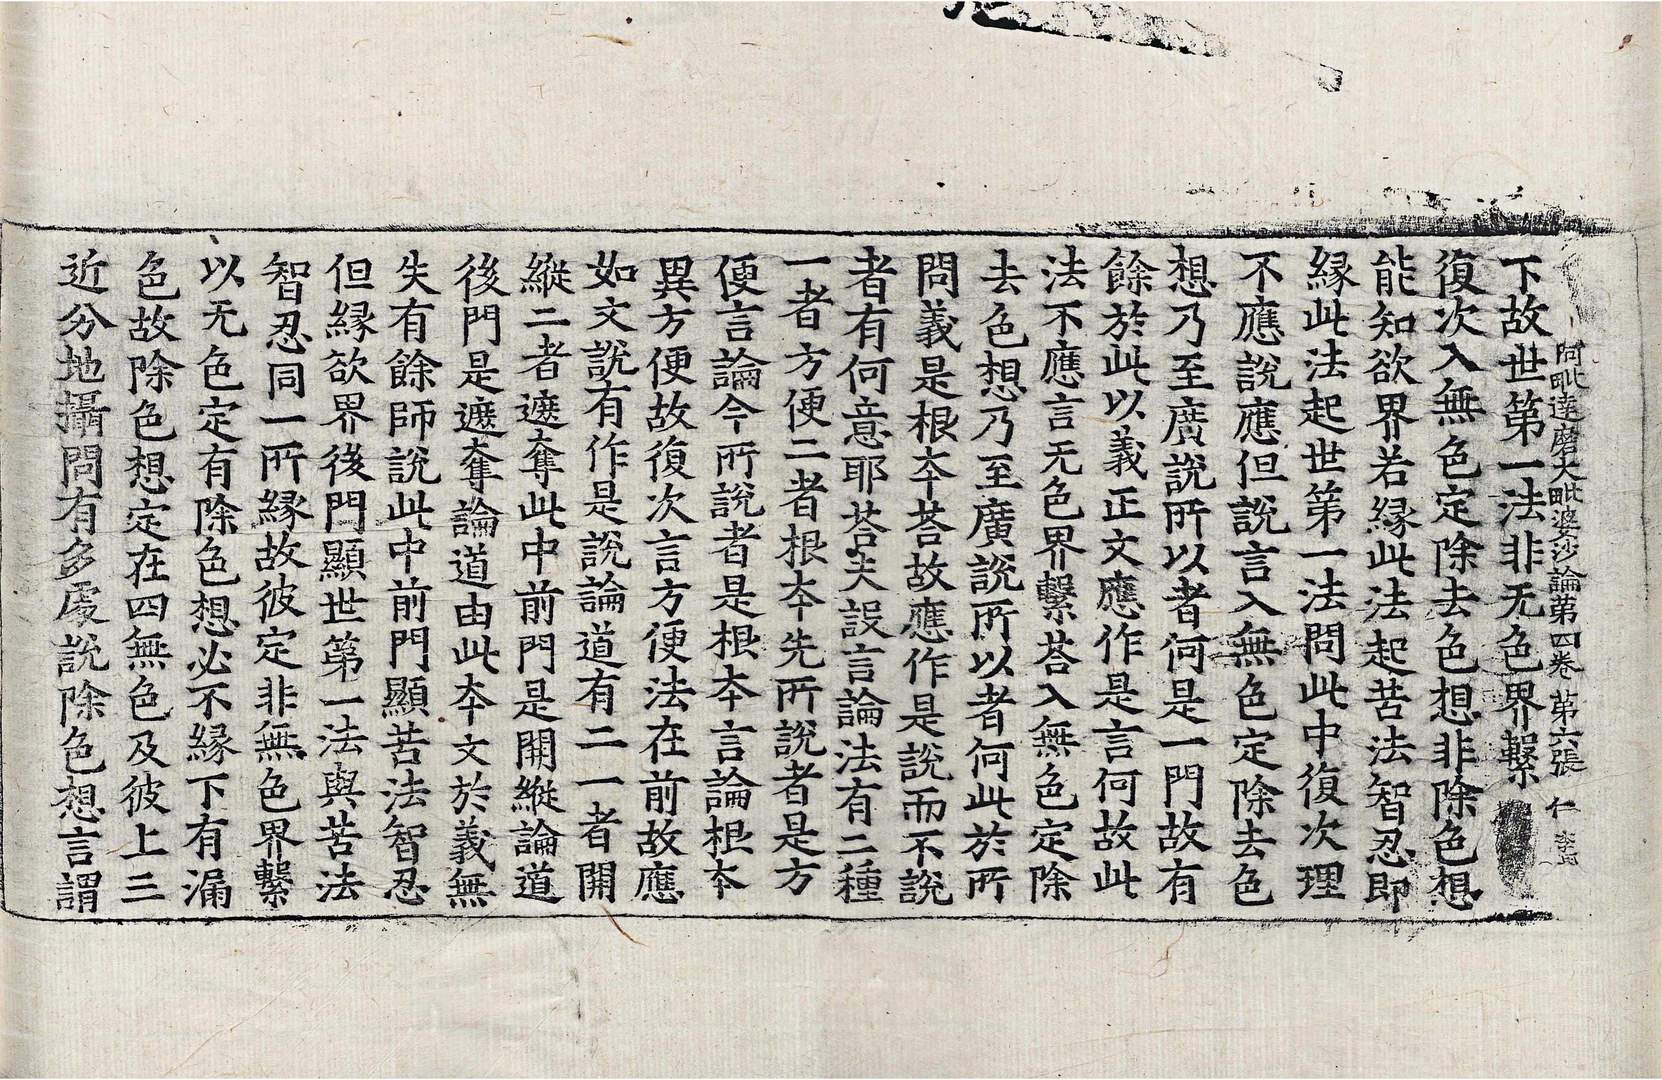 阿毗達磨大毗婆沙論第四卷 第六張 仁
下故世第一法非无色界繫
復次入無色定除去色想非除色想
能知欲界若緣此法起苦法智忍即
緣此法起世第一法問此中復次理
不應說應但說言入無色定除去色
想乃至廣說所以者何是一門故有
餘於此以義正文應作是言何故此
法不應言无色界繫荅入無色定除
去色想乃至廣說所以者何此於所
問義是根本荅故應作是說而不說
者有何意耶荅夫設言論法有二種
一者方便二者根本先所說者是方
便言論今所說者是根本言論根本
異方便故復次言方便法在前故應
如文說有作是說論道有二一者開
縱二者遮奪此中前門是開縱論道
後門是遮奪論道由此本文於義無
失有餘師說此中前門顯苦法智忍
但緣欲界後門顯世第一法與苦法
智忍同一所緣故彼定非無色界繫
以无色定有除色想必不緣下有漏
色故除色想定在四無色及彼上三
近分地攝問有多處說除色想言謂